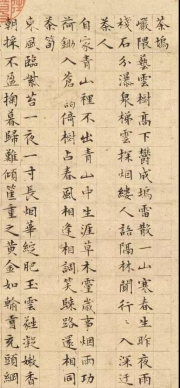 茶塢
巖隈藝雲樹高下鬱成塢雷散一山寒春生昨夜雨
棧石分瀑泉梯雲探烟縷人語隔林聞行〻入深迂
茶人
自家青山裡不出青山中生涯草木靈歲事烟雨功
荷鋤入蒼靄倚樹占春風相逢相調笑歸路還相同
茶筍
東風臨紫苔一夜一寸長烟華綻肥玉雲蕤凝嫩香
朝採不盈掬暮歸難傾筐重之黃金如輸貢充頭綱